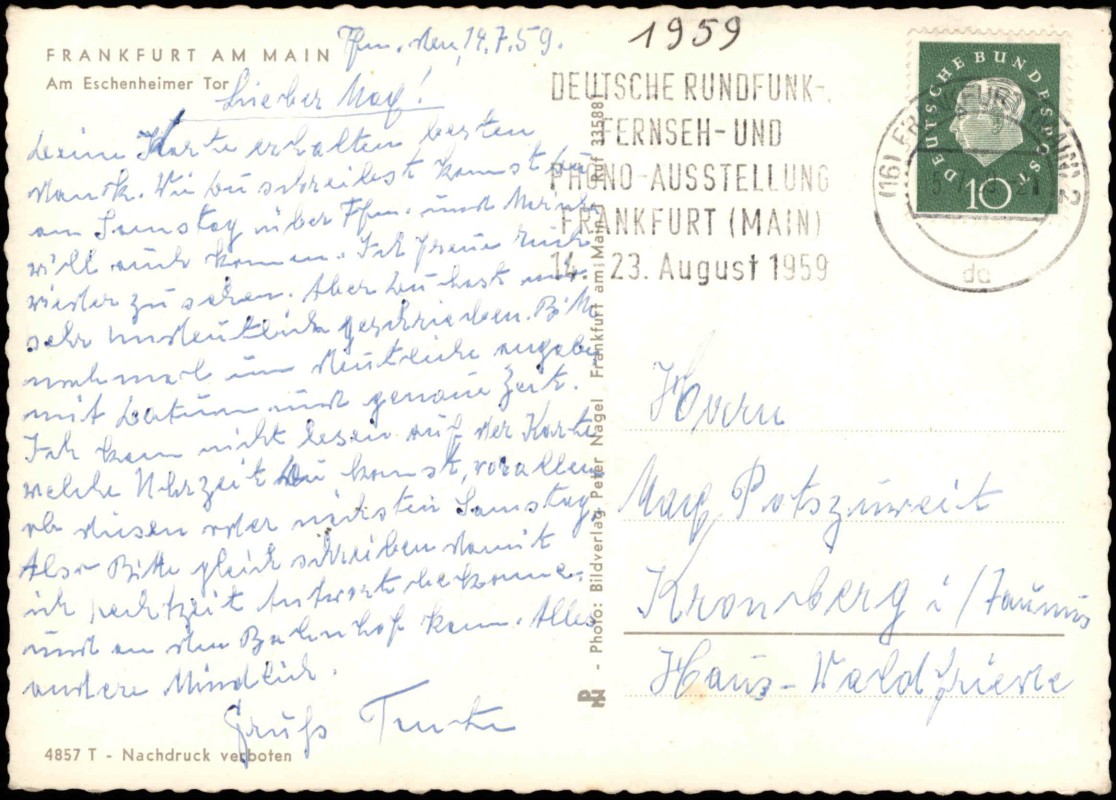 FRANKFURT AM MAIN
Am Eschenheimer Tor
Ffm. den, 14.7.59.
1959
Lieber Max!
Deine Karte erhalten besten
Dank. Wie Du schreibst kommst Du
am Samstag über Ffm. und
will auch kommen. Ich freue mich
wieder zu sehen. Aber Du hast mir
sehr undeutlich geschrieben. Bitte
nochmal um deutliche angabe
mit Datum und genaue Zeit.
Ich kann nicht lesen auf der Karte
welche Uhrzeit Du komst, vor allem
ob diesen oder nächsten Samstag.
Also Bitte gleich schreiben damit
ich Antwort bekomme.
und an den Bahnhof kann. Alles
andere Mündlich.
Gruß
4857 T - Nachdruck verboten
- Photo: Bildverlag Peter Nagel Frankfurt am Main 1 Ruf 335881
DEUTSCHE RUNDFUNK-,
FERNSEH- UND
PHONO-AUSSTELLUNG
FRANKFURT (MAIN)
14. 23. August 1959
DEUTSCHE BUNDESPOST
10
(16) FRANKFURT (MAIN) 2
dc
Herrn
Max Potszuweit
Kronberg i/Taunus
Haus-Waldfriede